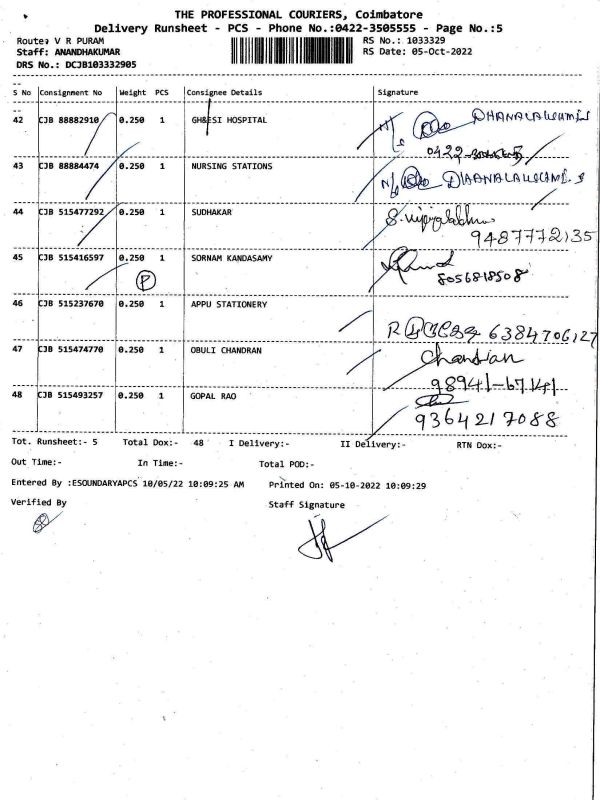 THE PROFESSIONAL COURIERS, Coimbatore
Delivery Runsheet - PCS - Phone No.:0422-3505555 - Page No.:5
Route: V R PURAM RS No.: 1033329
Staff: ANANDHAKUMAR RS Date: 05-Oct-2022
DRS No.: DCJB103332905
S No Consignment No Weight PCS Consignee Details Signature
42 CJB 88882910 0.250 1 GH&ESI HOSPITAL DHANALAKSHMI
0422
43 CJB 88884474 0.250 1 NURSING STATIONS DHANALAKSHMI. S
44 CJB 515477292 0.250 1 SUDHAKAR
9487772135
45 CJB 515416597 0.250 1 SORNAM KANDASAMY
P 8056818508
46 CJB 515237670 0.250 1 APPU STATIONERY
6384706127
47 CJB 515474770 0.250 1 OBULI CHANDRAN Chandran
98941-67141
48 CJB 515493257 0.250 1 GOPAL RAO
9364217088
Tot. Runsheet:- 5 Total Dox:- 48 I Delivery:- II Delivery:- RTN Dox:-
Out Time:- In Time:- Total POD:-
Entered By :ESOUNDARYAPCS 10/05/22 10:09:25 AM Printed On: 05-10-2022 10:09:29
Verified By Staff Signature